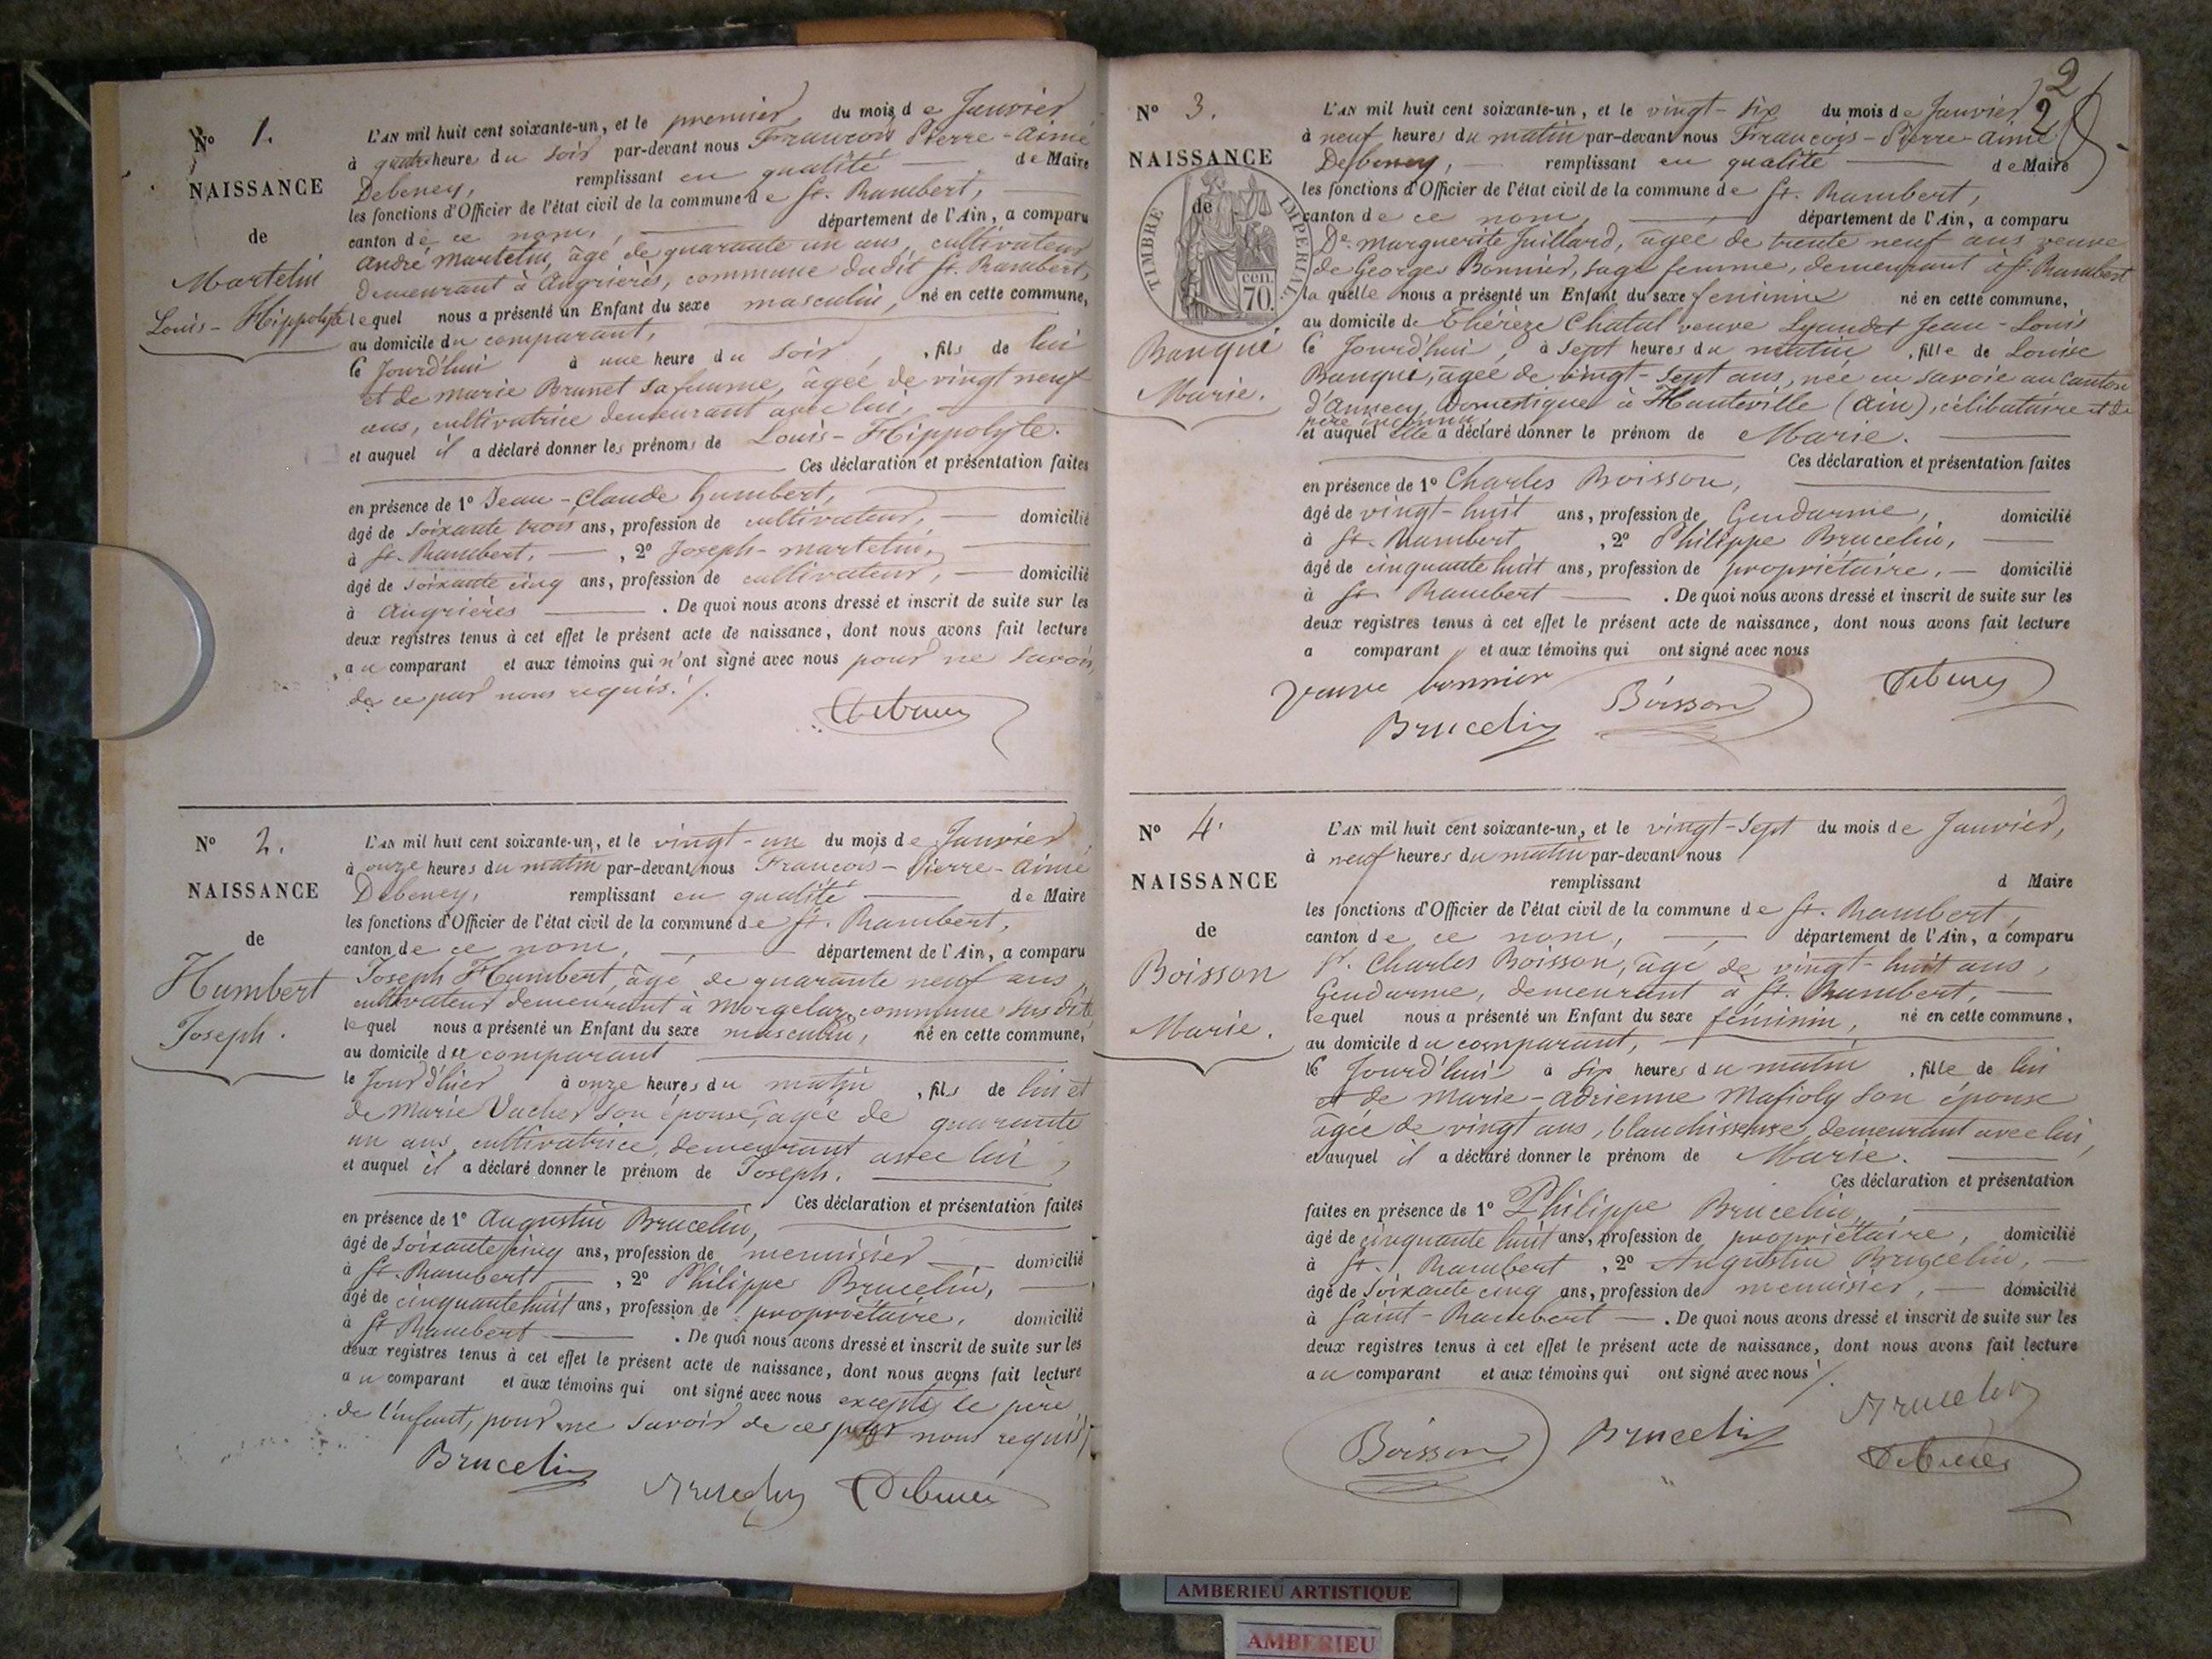 N° 1.
NAISSANCE
de
Martelin
Louis-Hippolyte
L'AN mil huit cent soixante-un, et le premier du mois de Janvier
à quatre heure du soir par-devant nous François Pierre-Aimé
Debeney, remplissant en qualité de Maire
les fonctions d'Officier de l'état civil de la commune de St. Rambert,
canton de ce nom, département de l'Ain, a comparu
André Martelin, âgé de quarante un ans, cultivateur
demeurant à Angrières, commune dudit St. Rambert,
lequel nous a présenté un Enfant du sexe masculin, né en cette commune,
au domicile du comparant,
le Jourd'hui à une heure du soir, fils de lui
et de Marie Brunet sa femme, âgée de vingt neuf
ans, cultivatrice demeurant avec lui,
et auquel il a déclaré donner les prénoms de Louis-Hippolyte.
Ces déclaration et présentation faites
en présence de 1° Jean-Claude humbert,
âgé de soixante trois ans, profession de cultivateur, domicilié
à St. Rambert, , 2° Joseph-Martelin,
âgé de soixante cinq ans, profession de cultivateur, domicilié
à Angrières . De quoi nous avons dressé et inscrit de suite sur les
deux registres tenus à cet effet le présent acte de naissance, dont nous avons fait lecture
au comparant et aux témoins qui n'ont signé avec nous pour ne savoir,
de ce par nous requis ./.
Debeney
N° 2.
NAISSANCE
de
Humbert
Joseph.
L'AN mil huit cent soixante-un, et le vingt-un du mois de Janvier
à onze heures du matin par-devant nous François-Pierre-Aimé
Debeney, remplissant en qualité de Maire
les fonctions d'Officier de l'état civil de la commune de St. Rambert,
canton de ce nom, département de l'Ain, a comparu
Joseph Humbert, âgé de quarante neuf ans,
cultivateur demeurant à Morgelaz, commune susdite
lequel nous a présenté un Enfant du sexe masculin, né en cette commune,
au domicile du comparant
le Jour d'hier à onze heures du matin, fils de lui et
de Marie Vacher son épouse, âgée de quarante
un ans, cultivatrice, demeurant avec lui,
et auquel il a déclaré donner le prénom de Joseph.
Ces déclaration et présentation faites
en présence de 1° Augustin Brucelin,
âgé de soixante cinq ans, profession de menuisier domicilié
à St. Rambert , 2° Philippe Brucelin,
âgé de cinquante huit ans, profession de propriétaire, domicilié
à St Rambert . De quoi nous avons dressé et inscrit de suite sur les
deux registres tenus à cet effet le présent acte de naissance, dont nous avons fait lecture
au comparant et aux témoins qui ont signé avec nous excepté le père
de l'enfant, pour ne savoir de ce par nous requis
Brucelin Brucelin Debeney
2
2
N° 3.
NAISSANCE
de
TIMBRE IMPERIAL
CEN. 70.
Banqui
Marie.
L'AN mil huit cent soixante-un, et le vingt-six du mois de Janvier
à neuf heures du matin par-devant nous François-Pierre-Aimé
Debeney, remplissant en qualité de Maire
les fonctions d'Officier de l'état civil de la commune de St. Rambert,
canton de ce nom, département de l'Ain, a comparu
De. Marguerite Juillard, âgée de trente neuf ans veuve
de Georges Bonnier, sage femme, demeurant à St. Rambert
laquelle nous a présenté un Enfant du sexe feminin né en cette commune,
au domicile de Thérèze Chatal veuve Lyaudet Jean-Louis
le Jourd'hui, à sept heures du matin, fille de Louise
Banqui, âgée de vingt-sept ans, née en Savoie au Canton
d'Annecy, Domestique à Hauteville (Ain), célibataire et de
père inconnu
et auquel elle a déclaré donner le prénom de Marie.
Ces déclaration et présentation faites
en présence de 1° Charles Boisson,
âgé de vingt-huit ans, profession de Gendarme, domicilié
à St. Rambert , 2° Philippe Brucelin,
âgé de cinquante huit ans, profession de propriétaire, domicilié
à St. Rambert . De quoi nous avons dressé et inscrit de suite sur les
deux registres tenus à cet effet le présent acte de naissance, dont nous avons fait lecture
a comparant et aux témoins qui ont signé avec nous
veuve bonnier Boisson Debeney
Brucelin
N° 4.
NAISSANCE
de
Boisson
Marie.
L'AN mil huit cent soixante-un, et le vingt-sept du mois de Janvier,
à neuf heures du matin par-devant nous
remplissant d Maire
les fonctions d'Officier de l'état civil de la commune de St. Rambert,
canton de ce nom, département de l'Ain, a comparu
Sr. Charles Boisson, âgé de vingt-huit ans,
Gendarme, demeurant à St. Rambert,
lequel nous a présenté un Enfant du sexe féminin, né en cette commune,
au domicile du comparant,
le Jourd'hui à six heures du matin, fille de lui
et de Marie-Adrienne Mafioly son épouse
âgée de vingt ans, blanchisseuse, demeurant avec lui,
et auquel il a déclaré donner le prénom de Marie.
Ces déclaration et présentation
faites en présence de 1° Philippe Brucelin,
âgé de cinquante huit ans, profession de propriétaire, domicilié
à St. Rambert , 2° Augustin Brucelin,
âgé de soixante cinq ans, profession de menuisier, domicilié
à Saint-Rambert . De quoi nous avons dressé et inscrit de suite sur les
deux registres tenus à cet effet le présent acte de naissance, dont nous avons fait lecture
au comparant et aux témoins qui ont signé avec nous ./.
Boisson Brucelin Brucelin
Debeney
AMBERIEU ARTISTIQUE
AMBERIEU